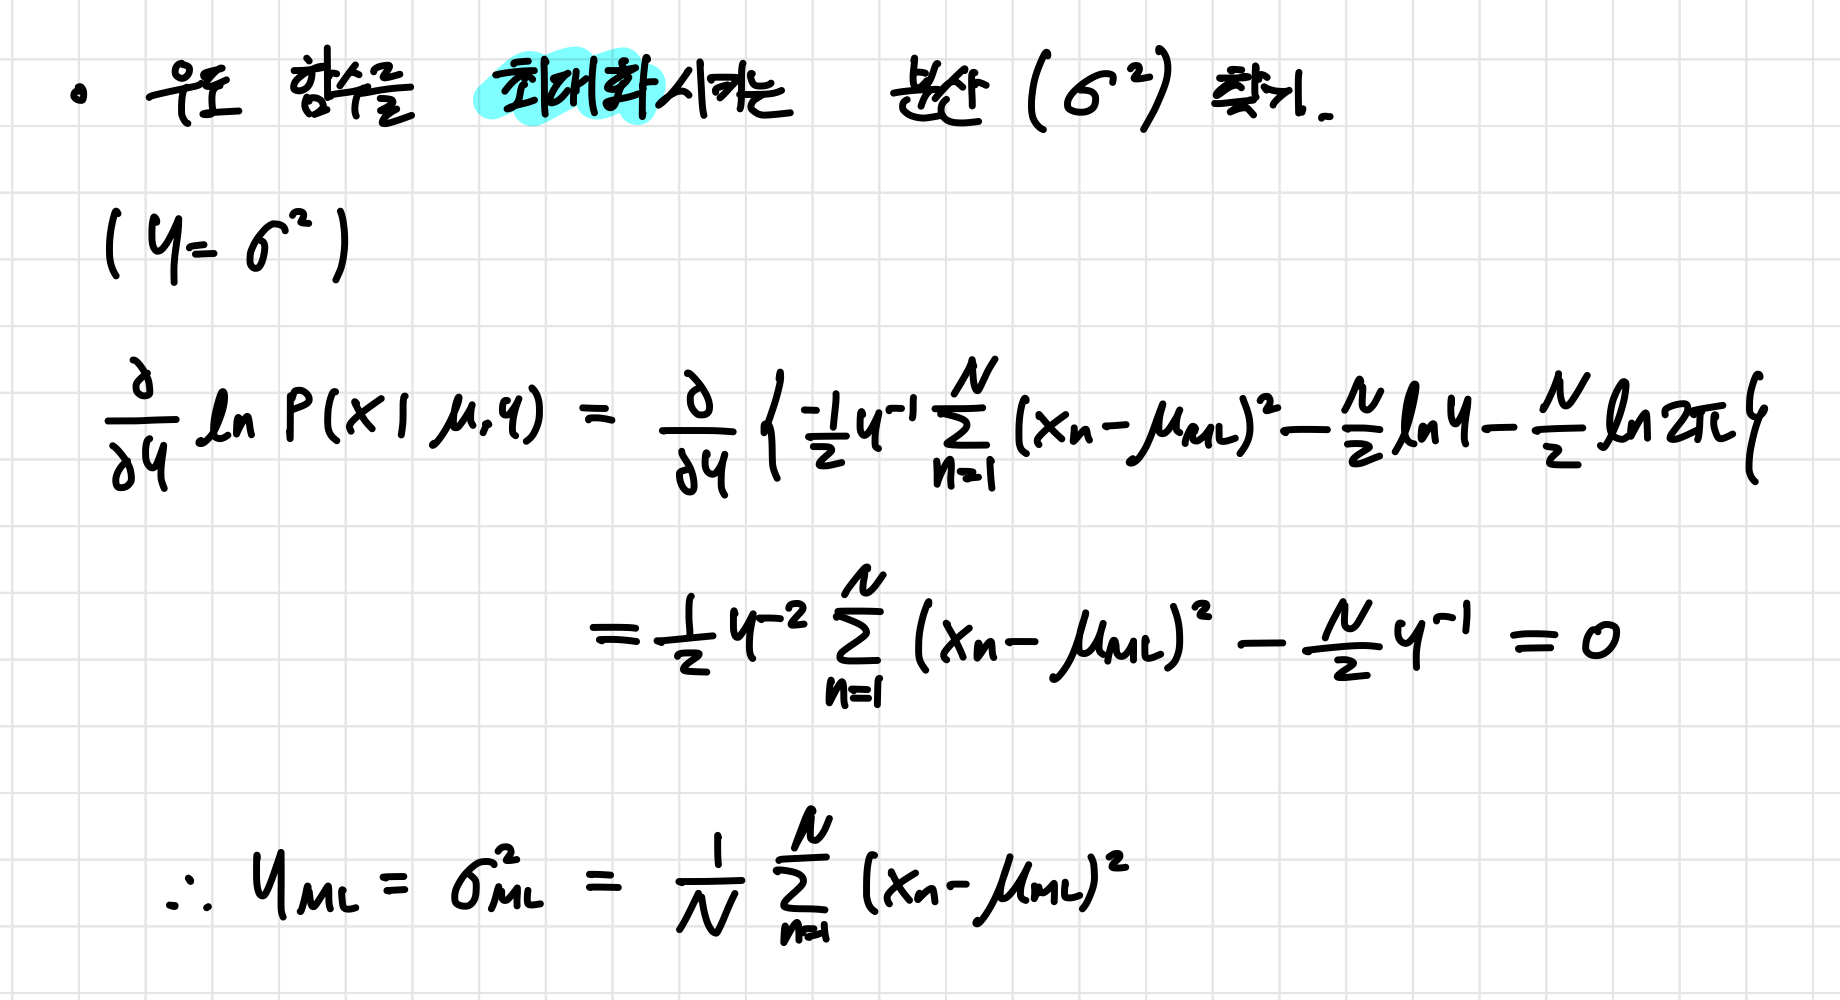 • 우도 함수를 최대화시키는 분산 (σ²) 찾기.
(y = σ²)
∂/∂y ln P(x | μ, y) = ∂/∂y { -1/2 y⁻¹ ∑_{n=1}^{N} (xₙ - μ_ML)² - N/2 ln y - N/2 ln 2π }
= 1/2 y⁻² ∑_{n=1}^{N} (xₙ - μ_ML)² - N/2 y⁻¹ = 0
∴ y_ML = σ²_ML = 1/N ∑_{n=1}^{N} (xₙ - μ_ML)²